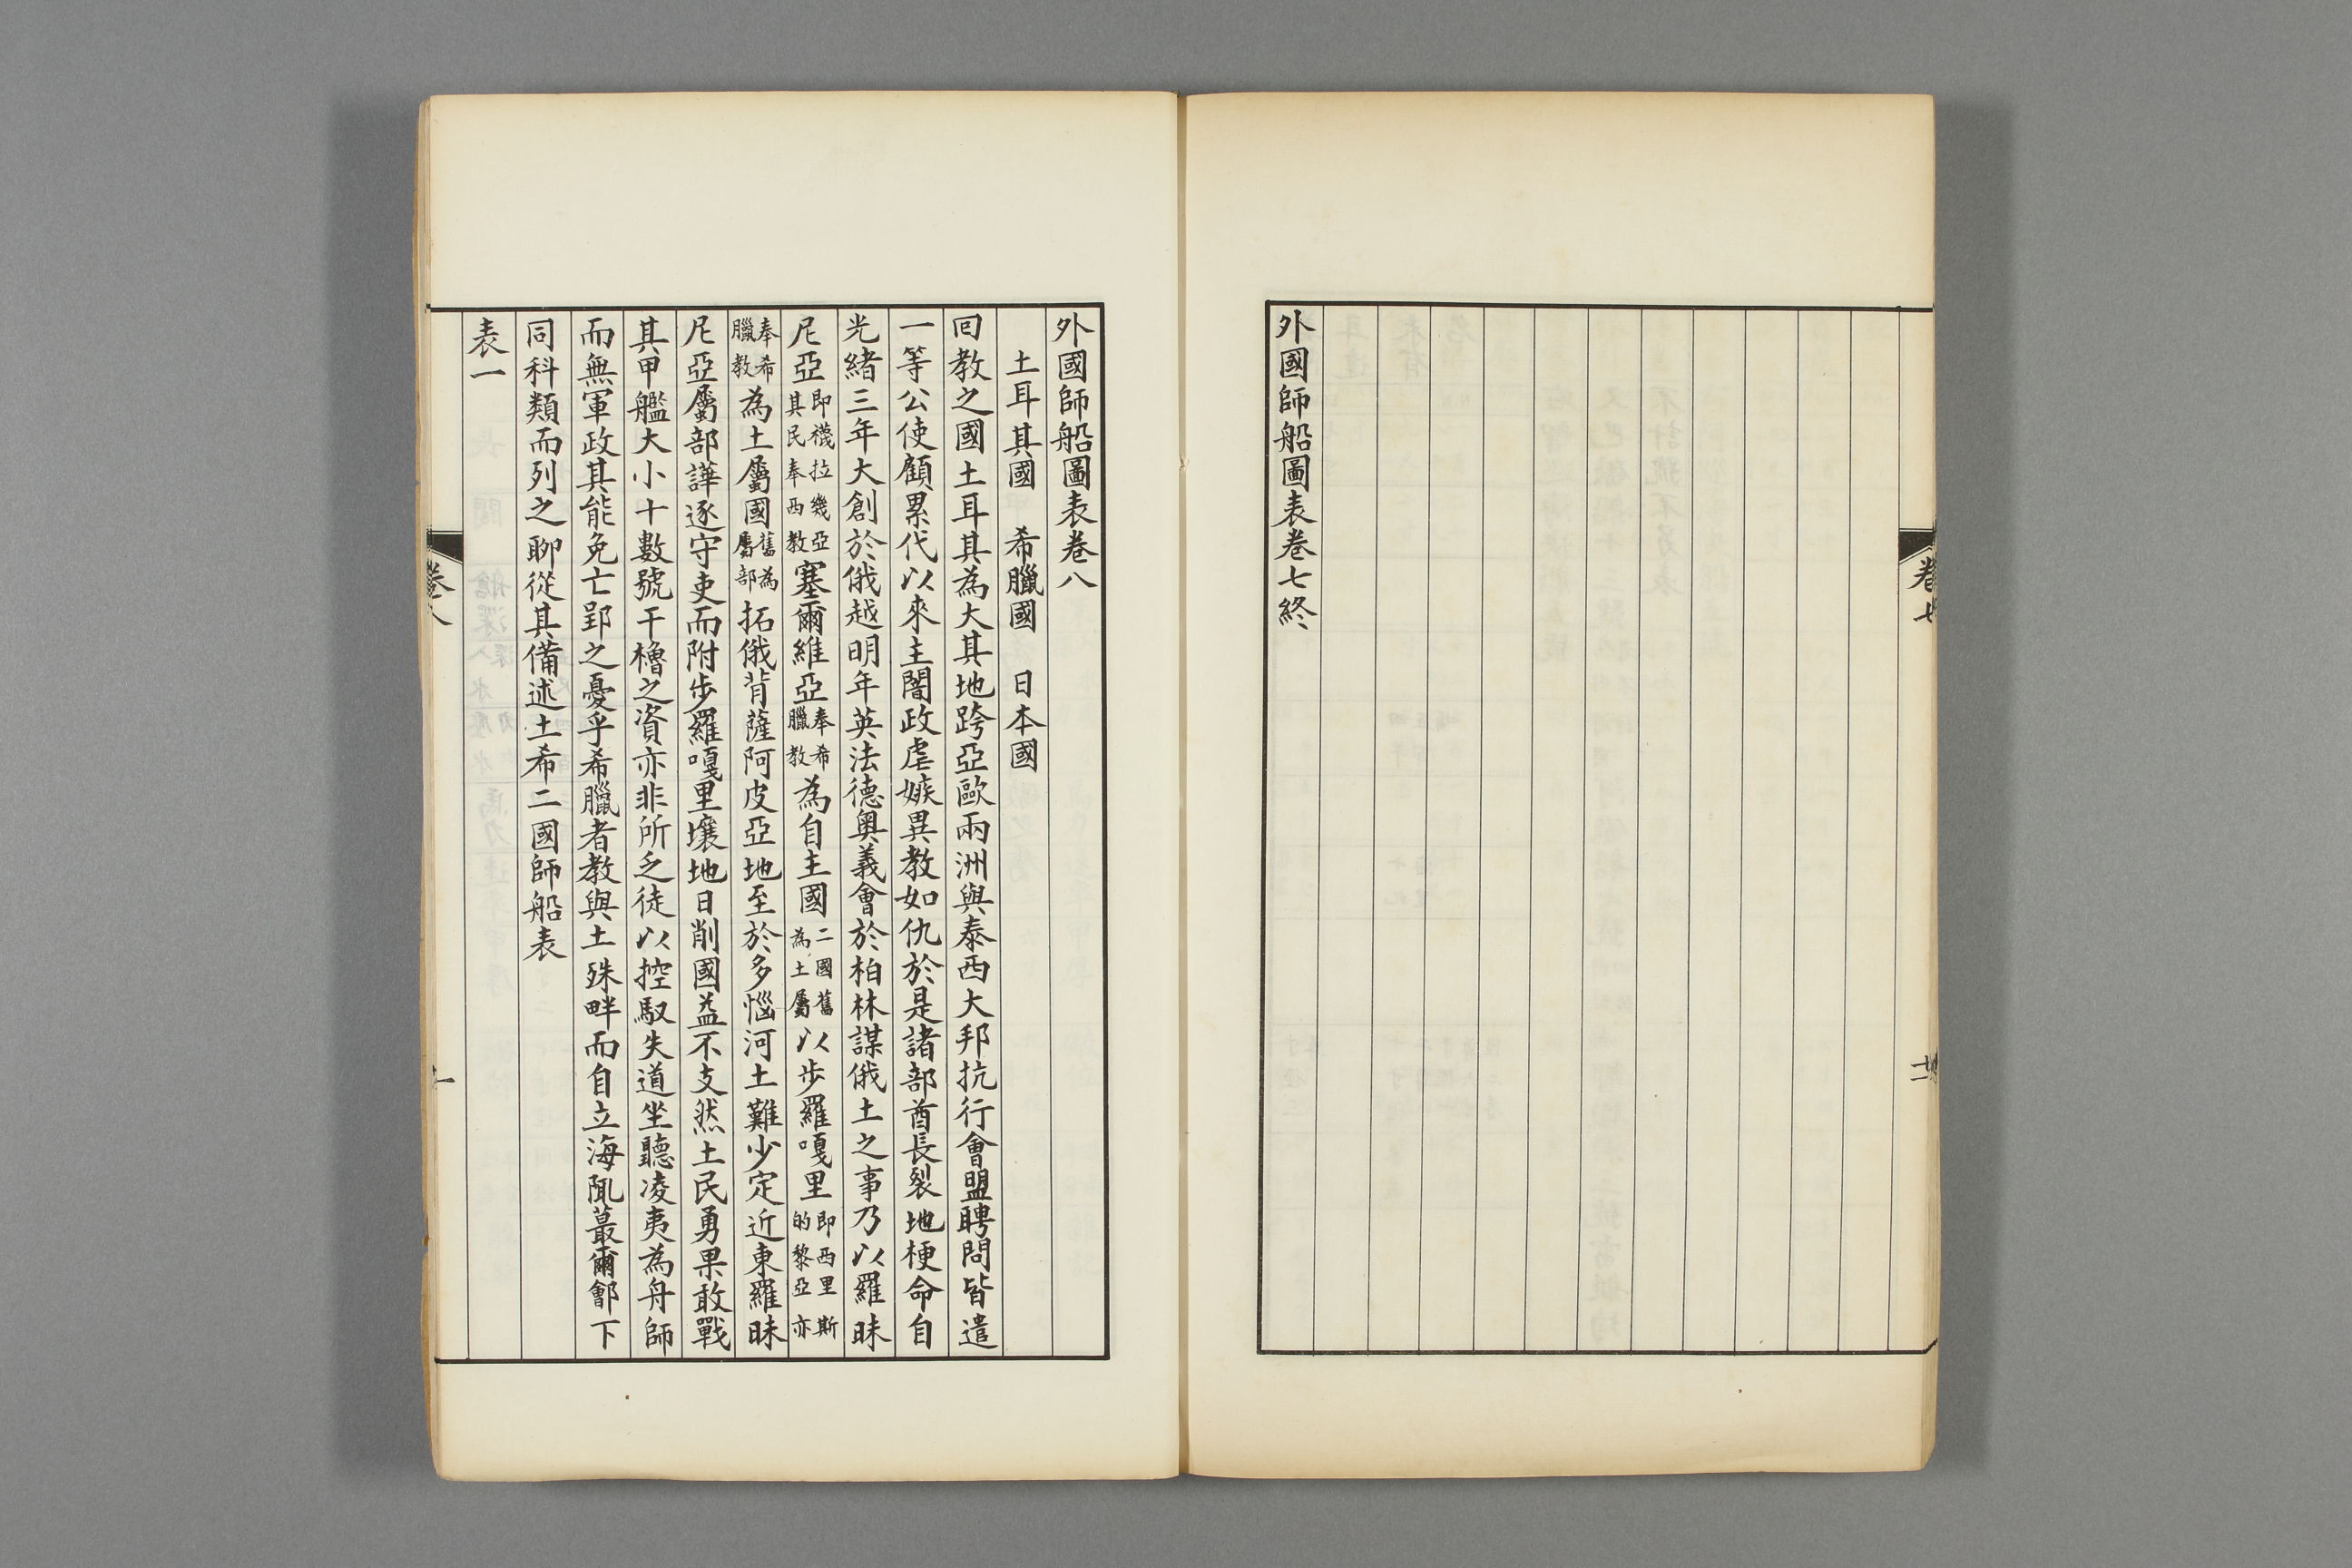 外國師船圖表卷七終
外國師船圖表卷八
土耳其國　希臘國　日本國
回教之國土耳其為大其地跨亞歐兩洲與泰西大邦抗行會盟聘問皆遣
一等公使顧累代以來主闇政虐嫉異教如仇於是諸部酋長裂地梗命自
光緒三年大創於俄越明年英法德奧義會於柏林謀俄土之事乃以羅昧
尼亞即襪拉幾亞其民奉西教塞爾維亞奉希臘教為自主國二國舊為土屬以步羅嘎里即西里斯的黎亞亦
奉希臘教為土屬國舊為屬部拓俄背薩阿皮亞地至於多惱河土難少定近東羅昧
尼亞屬部譁逐守吏而附步羅嘎里壤地日削國益不支然土民勇果敢戰
其甲艦大小十數號干櫓之資亦非所乏徒以控馭失道坐聽凌夷為舟師
而無軍政其能免亡郢之憂乎希臘者教與土殊畔而自立海陬蕞爾鄶下
同科類而列之聊從其備述土希二國師船表
表一
卷七
卷八
一